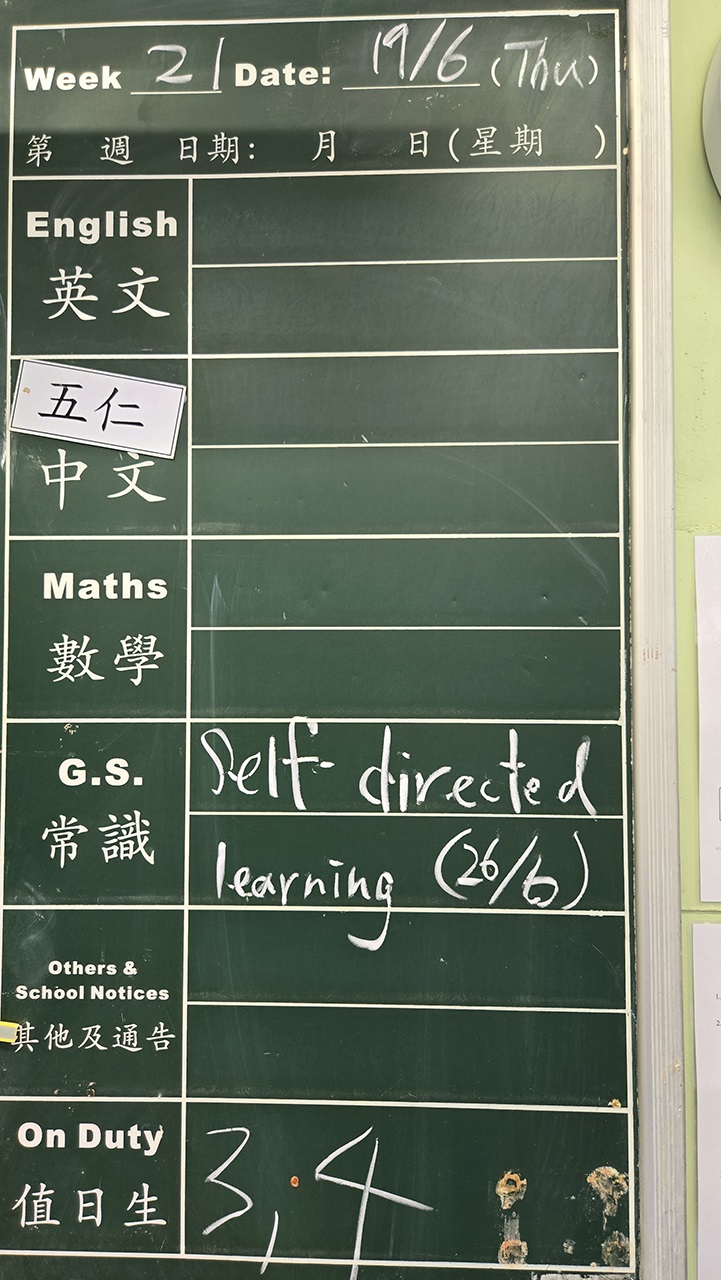 Week 21 Date: 19/6 (Thu)
第 週 日期: 月 日(星期 )
English
英文
五仁
中文
Maths
數學
G.S. Self-directed
常識 learning (26/6)
Others &
School Notices
其他及通告
On Duty 3, 4
值日生